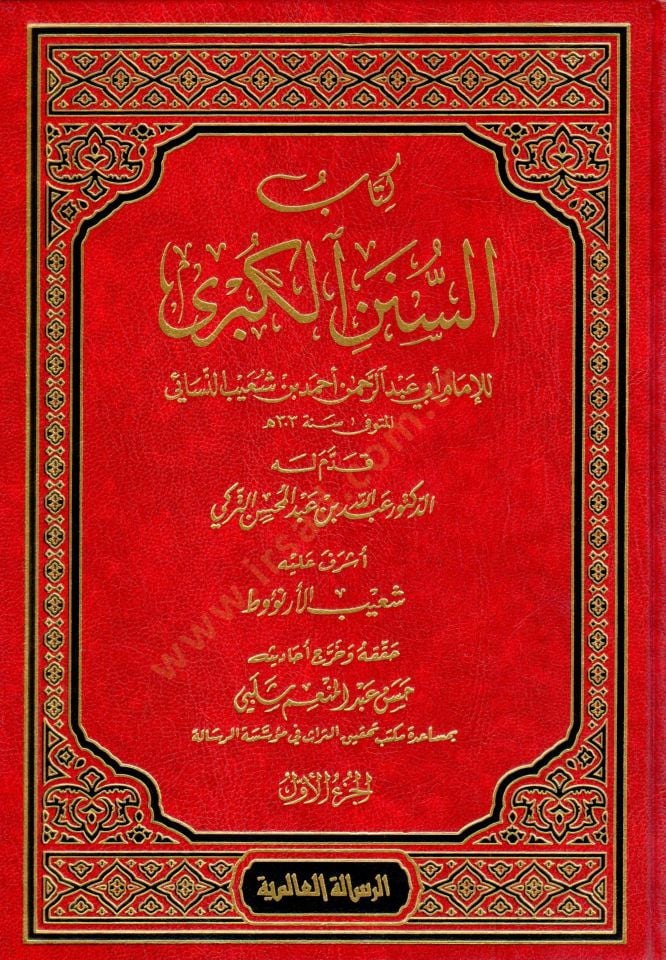 كِتَابُ
السُّنَنِ ٱلْكُبْرَى
للإمام أبي عبد الرحمن أحمد بن شعيب النسائي
المتوفى سنة ٣٠٣ هـ
قدم له
الدكتور عبد الله بن عبد المحسن التركي
أشرف عليه
شعيب الأرنؤوط
حققه وخرج أحاديثه
حسن عبد المنعم شلبي
بمساعدة مكتب تحقيق التراث في مؤسسة الرسالة
الجزء الأول
الرسالة العالمية